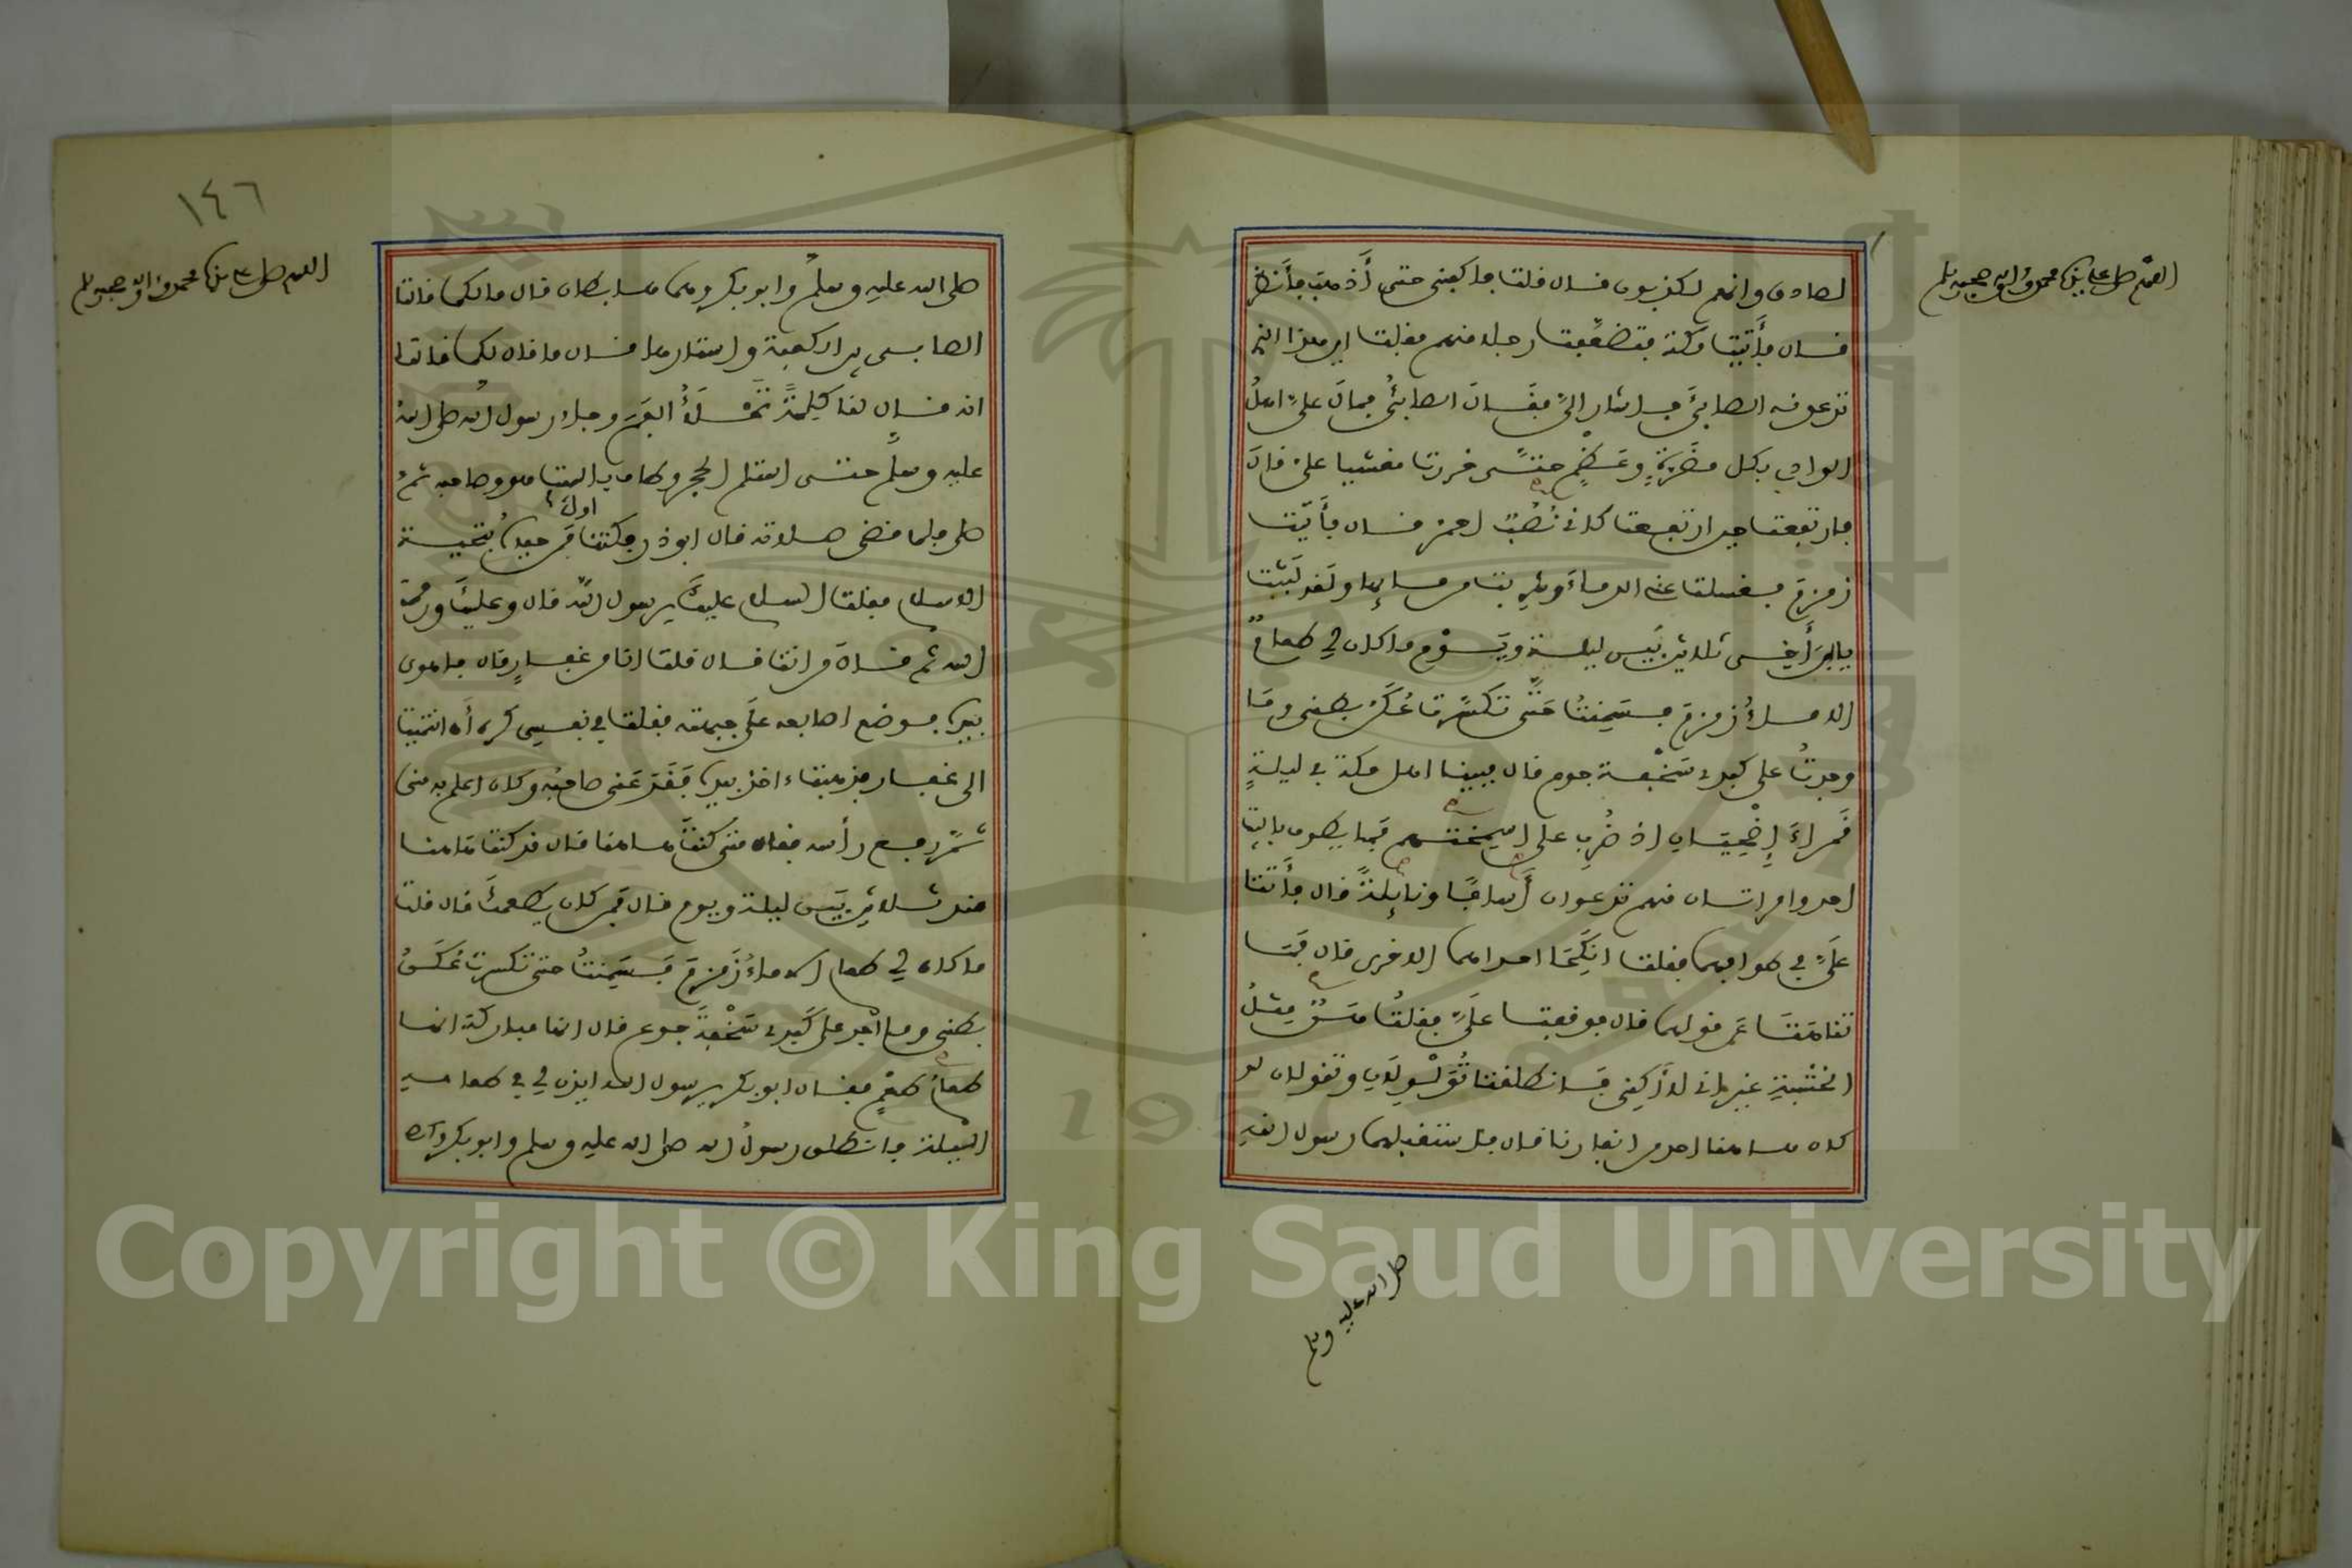 اللهم صل على سيدنا محمد وآله وصحبه وسلم
لصادق وانهم لكذبون قال قلت فاكفني حتى أذهب فأنظر
قال فأتيت مكة فتضعفت رجلا منهم فقلت اين هذا الذي
تدعونه الصابئ فاشار اليّ فقال الصابئ فمال علي اهل
الوادي بكل مدرة وعظم حتى خررت مغشيا علي قال
فارتفعت حين ارتفعت كاني نصب احمر قال فأتيت
زمزم فغسلت عني الدماء وشربت من مائها ولقد لبثت
يا ابن أخي ثلاثين بين ليلة ويوم ما كان لي طعام
الا ماء زمزم فسمنت حتى تكسرت عكن بطني وما
وجدت على كبدي سخفة جوع قال فبينا اهل مكة في ليلة
قمراء إضحيان اذ ضرب على اسمختهم فما يطوف بالبيت
احد وامراتان منهم تدعوان أسافا ونائلة قال فأتتا
عليّ في طوافهما فقلت انكحا احداهما الاخرى قال فما
تناهتا عن قولهما قال فوقفتا عليّ فقلت هن مثل
الخشبة غير اني لا أكني فانطلقتا تولولان وتقولان لو
كان هاهنا احد من انفارنا قال فاستقبلهما رسول الله
صلى الله عليه وسلم
١٤٦
اللهم صل على سيدنا محمد وآله وصحبه وسلم
صلى الله عليه وسلم وابو بكر وهما هابطان قال ما لكما قالتا
الصابىء بين الكعبة واستارها قال ما قال لكما قالتا
انه قال لنا كلمة تملأ الفم وجاء رسول الله صلى الله
عليه وسلم حتى استلم الحجر وطاف بالبيت هو وصاحبه ثم
صلى فلما قضى صلاته قال ابو ذر فكنت اول من حياه بتحية
الاسلام فقلت السلام عليك يرسول الله قال وعليك ورحمة
الله ثم قال من انت قال قلت انا من غفار قال فاهوى
بيده فوضع اصابعه على جبهته فقلت في نفسي كره أن انتميت
الى غفار فذهبت ءاخذ بيده فقدعني صاحبه وكان اعلم به مني
ثم رفع رأسه فقال متى كنت هاهنا قال قد كنت هاهنا
منذ ثلاثين بين ليلة ويوم قال فمن كان يطعمك قال قلت
ما كان لي طعام الا ماء زمزم فسمنت حتى تكسرت عكن
بطني وما أجد على كبدي سخفة جوع قال انها مباركة انها
طعام طعم فقال ابو بكر يرسول الله ايذن لي في طعامه
الليلة فانطلق رسول الله صلى الله عليه وسلم وابو بكر